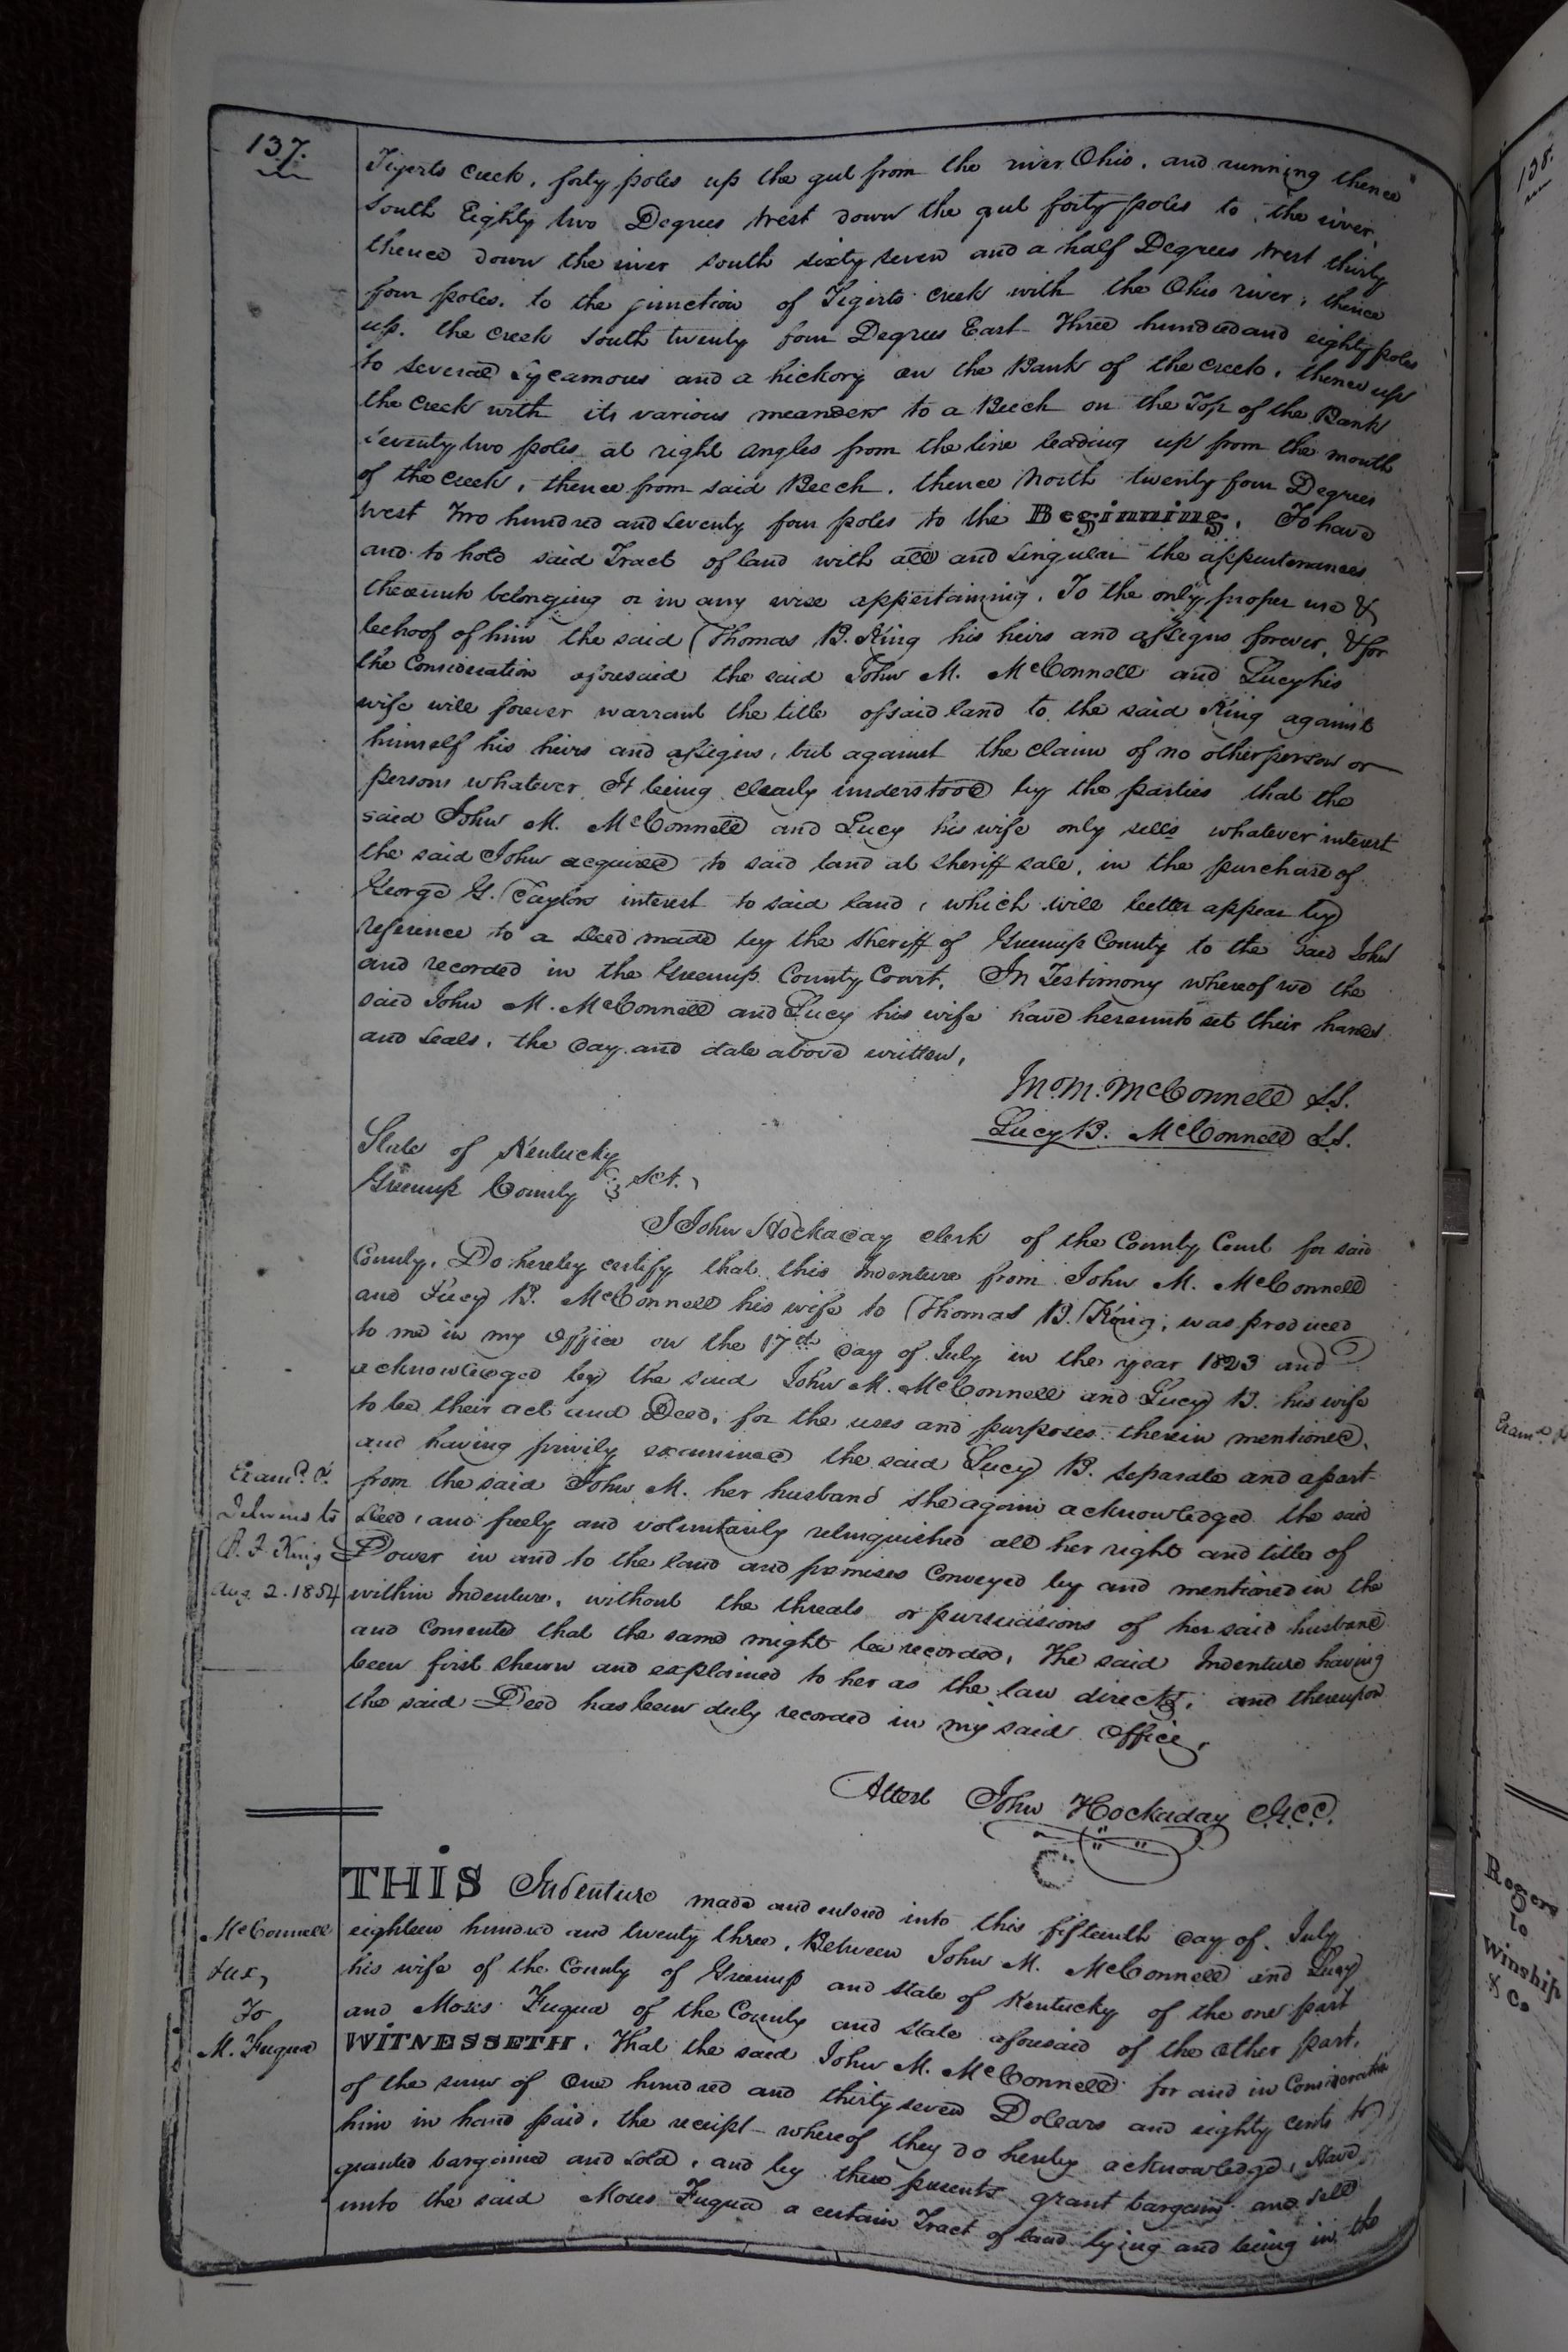 137.
Tigerts Creek, forty poles up the gut from the river Ohio, and running thence
South Eighty two Degrees West down the gut forty poles to the river,
thence down the river South sixty seven and a half Degrees West thirty
four poles, to the junction of Tigerts Creek with the Ohio river, thence
up. the Creek South twenty four Degrees East Three hundred and eighty poles
to several Sycamores and a hickory on the Bank of the Creek, thence up
the Creek with its various meanders to a Beech on the Top of the Bank
seventy two poles at right angles from the line leading up from the mouth
of the Creek, thence from said Beech. thence North twenty four Degrees
West Two hundred and seventy four poles to the Beginning. To have
and to hold said Tract of land with all and singular the appurtenances
thereunto belonging or in any wise appertaining. To the only proper use &
behoof of him the said Thomas B. King his heirs and assigns forever, & for
the Consideration aforesaid the said John M. McConnell and Lucy his
wife will forever warrant the title of said land to the said King against
himself his heirs and assigns, but against the claim of no other person or
persons whatever, It being clearly understood by the parties that the
said John M. McConnell and Lucy his wife only sells whatever interest
the said John acquired to said land at Sheriff sale, in the purchase of
George G. Taylors interest to said land, which will better appear by
reference to a Deed made by the Sheriff of Greenup County to the said John
and recorded in the Greenup County Court. In Testimony whereof we the
said John M. McConnell and Lucy his wife have hereunto set their hands
and seals, the day and date above written,
Jn. M. McConnell L.S.
Lucy B. McConnell L.S.
State of Kentucky
Greenup County } Sct.
I John Hockaday clerk of the County Court for said
County. Do hereby certify that this Indenture from John M. McConnell
and Lucy B. McConnell his wife to Thomas B. King, was produced
to me in my office on the 17th day of July in the year 1823 and
acknowledged by the said John M. McConnell and Lucy B. his wife
to be their act and Deed, for the uses and purposes therein mentioned.
and having privily examined the said Lucy B. separate and apart
from the said John M. her husband she again acknowledged the said
Deed, and freely and voluntarily relinquished all her right and title of
Dower in and to the land and premises Conveyed by and mentioned in the
within Indenture, without the threats or pursuasions of her said husband
and Consented that the same might be recorded, The said Indenture having
been first shewn and explained to her as the law directs, and thereupon
the said Deed has been duly recorded in my said Office,
Examd. &
Delivered to
King
Aug. 2. 1854
Attest John Hockaday C.G.C.C.
THIS Indenture made and entered into this fifteenth day of July
eighteen hundred and twenty three, Between John M. McConnell and Lucy
his wife of the County of Greenup and State of Kentucky of the one part
and Moses Fuqua of the County and State aforesaid of the other part.
WITNESSETH. That the said John M. McConnell for and in Consideration
of the sum of One hundred and thirty seven Dollars and eighty cents to
him in hand paid, the receipt whereof they do hereby acknowledge, Have
granted bargained and sold, and by these presents grant bargain and sell
unto the said Moses Fuqua a certain Tract of land lying and being in the
McConnell
&ux,
To
M. Fuqua
138.
Examd
Rogers
to
Winship
& Co